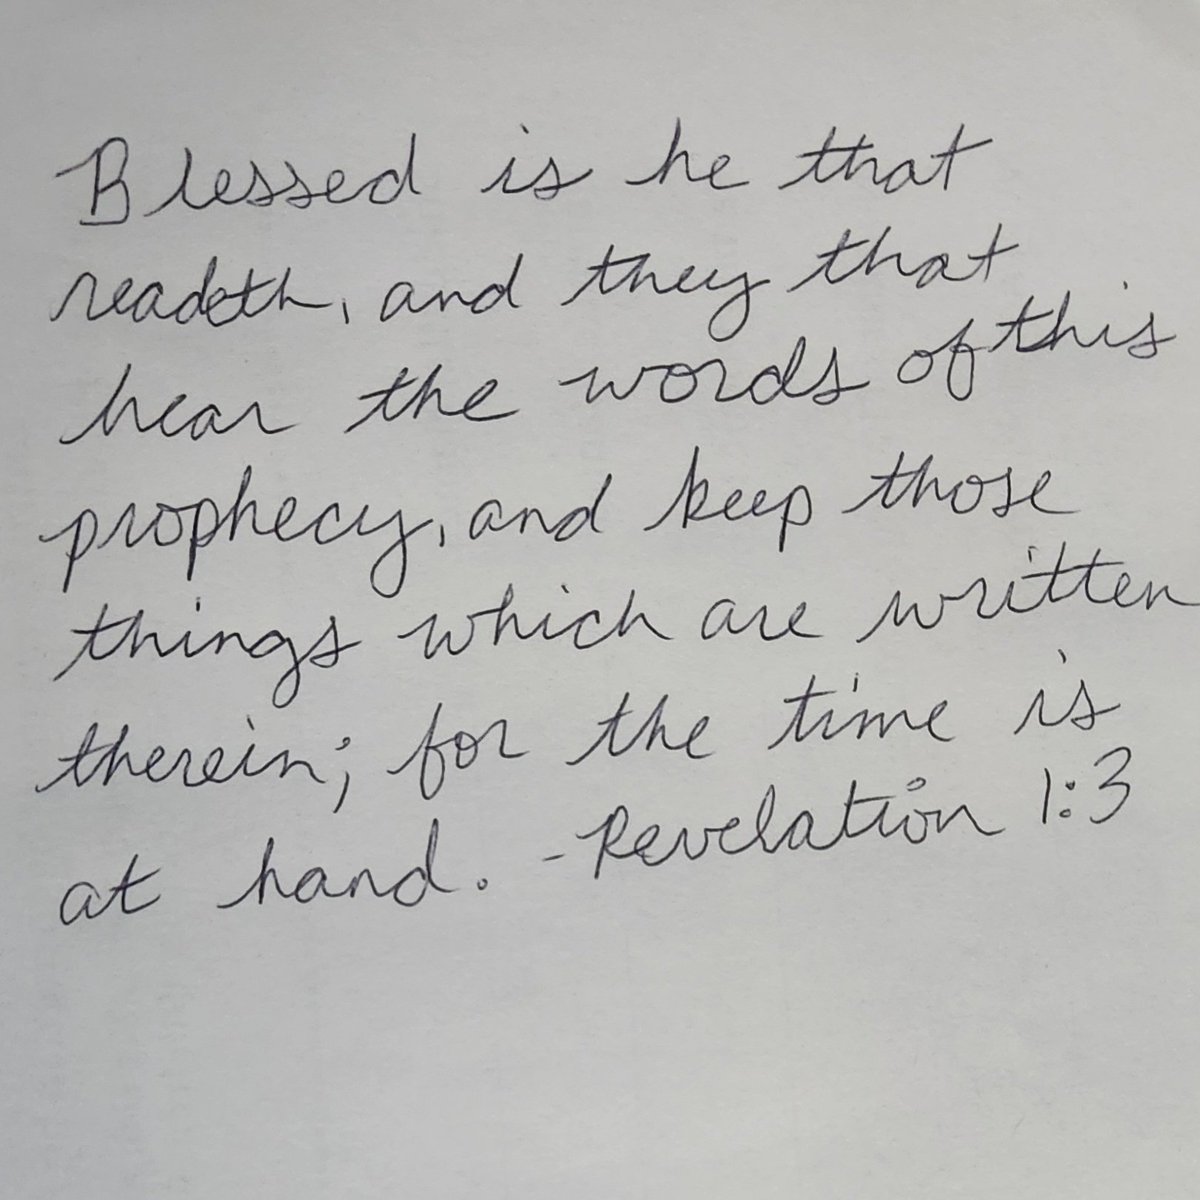 Blessed is he that
readeth, and they that
hear the words of this
prophecy, and keep those
things which are written
therein; for the time is
at hand. -Revelation 1:3